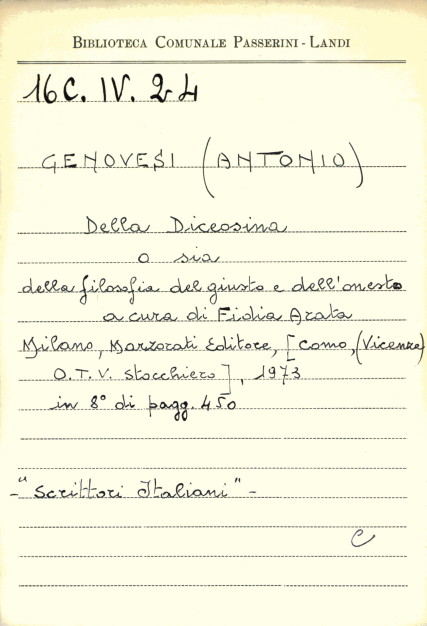 BIBLIOTECA COMUNALE PASSERINI - LANDI
16 C. IV. 24
GENOVESI (ANTONIO)
Della Diceosina
o sia
della filosofia del giusto e dell'onesto
a cura di Fidia Arata
Milano, Marzorati Editore, [Como, (Vicenza)
O.T.V. Stocchiero], 1973
in 8° di pagg. 450
-"Scrittori Italiani"-
C